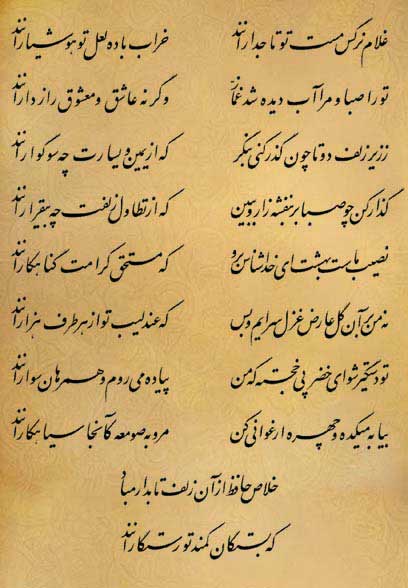 غلام نرگس مست تو تاجدارانند خراب باده لعل تو هوشیارانند
تو را صبا و مرا آب دیده شد غماز وگرنه عاشق و معشوق رازدارانند
ز زیر زلف دوتا چون گذر کنی بنگر که از یمین و یسارت چه سوگوارانند
گذار کن چو صبا بر بنفشه زار و ببین که از تطاول زلفت چه بیقرارانند
نصیب ماست بهشت ای خداشناس برو که مستحق کرامت گناهکارانند
نه من بر آن گل عارض غزل سرایم و بس که عندلیب تو از هر طرف هزارانند
تو دستگیر شو ای خضر پی خجسته که من پیاده می روم و همرهان سوارانند
بیا به میکده و چهره ارغوانی کن مرو به صومعه کآنجا سیاهکارانند
خلاص حافظ از آن زلف تابدار مباد
که بستگان کمند تو رستگارانند